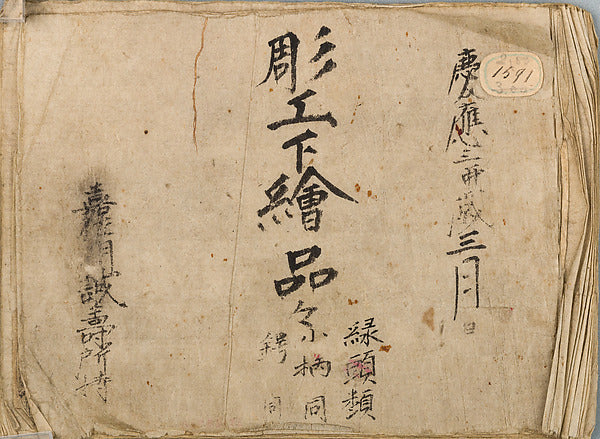 慶應三卯歳三月日
1591
彫工下繪品々
縁頭類
小柄同
鍔同
誠壽所持